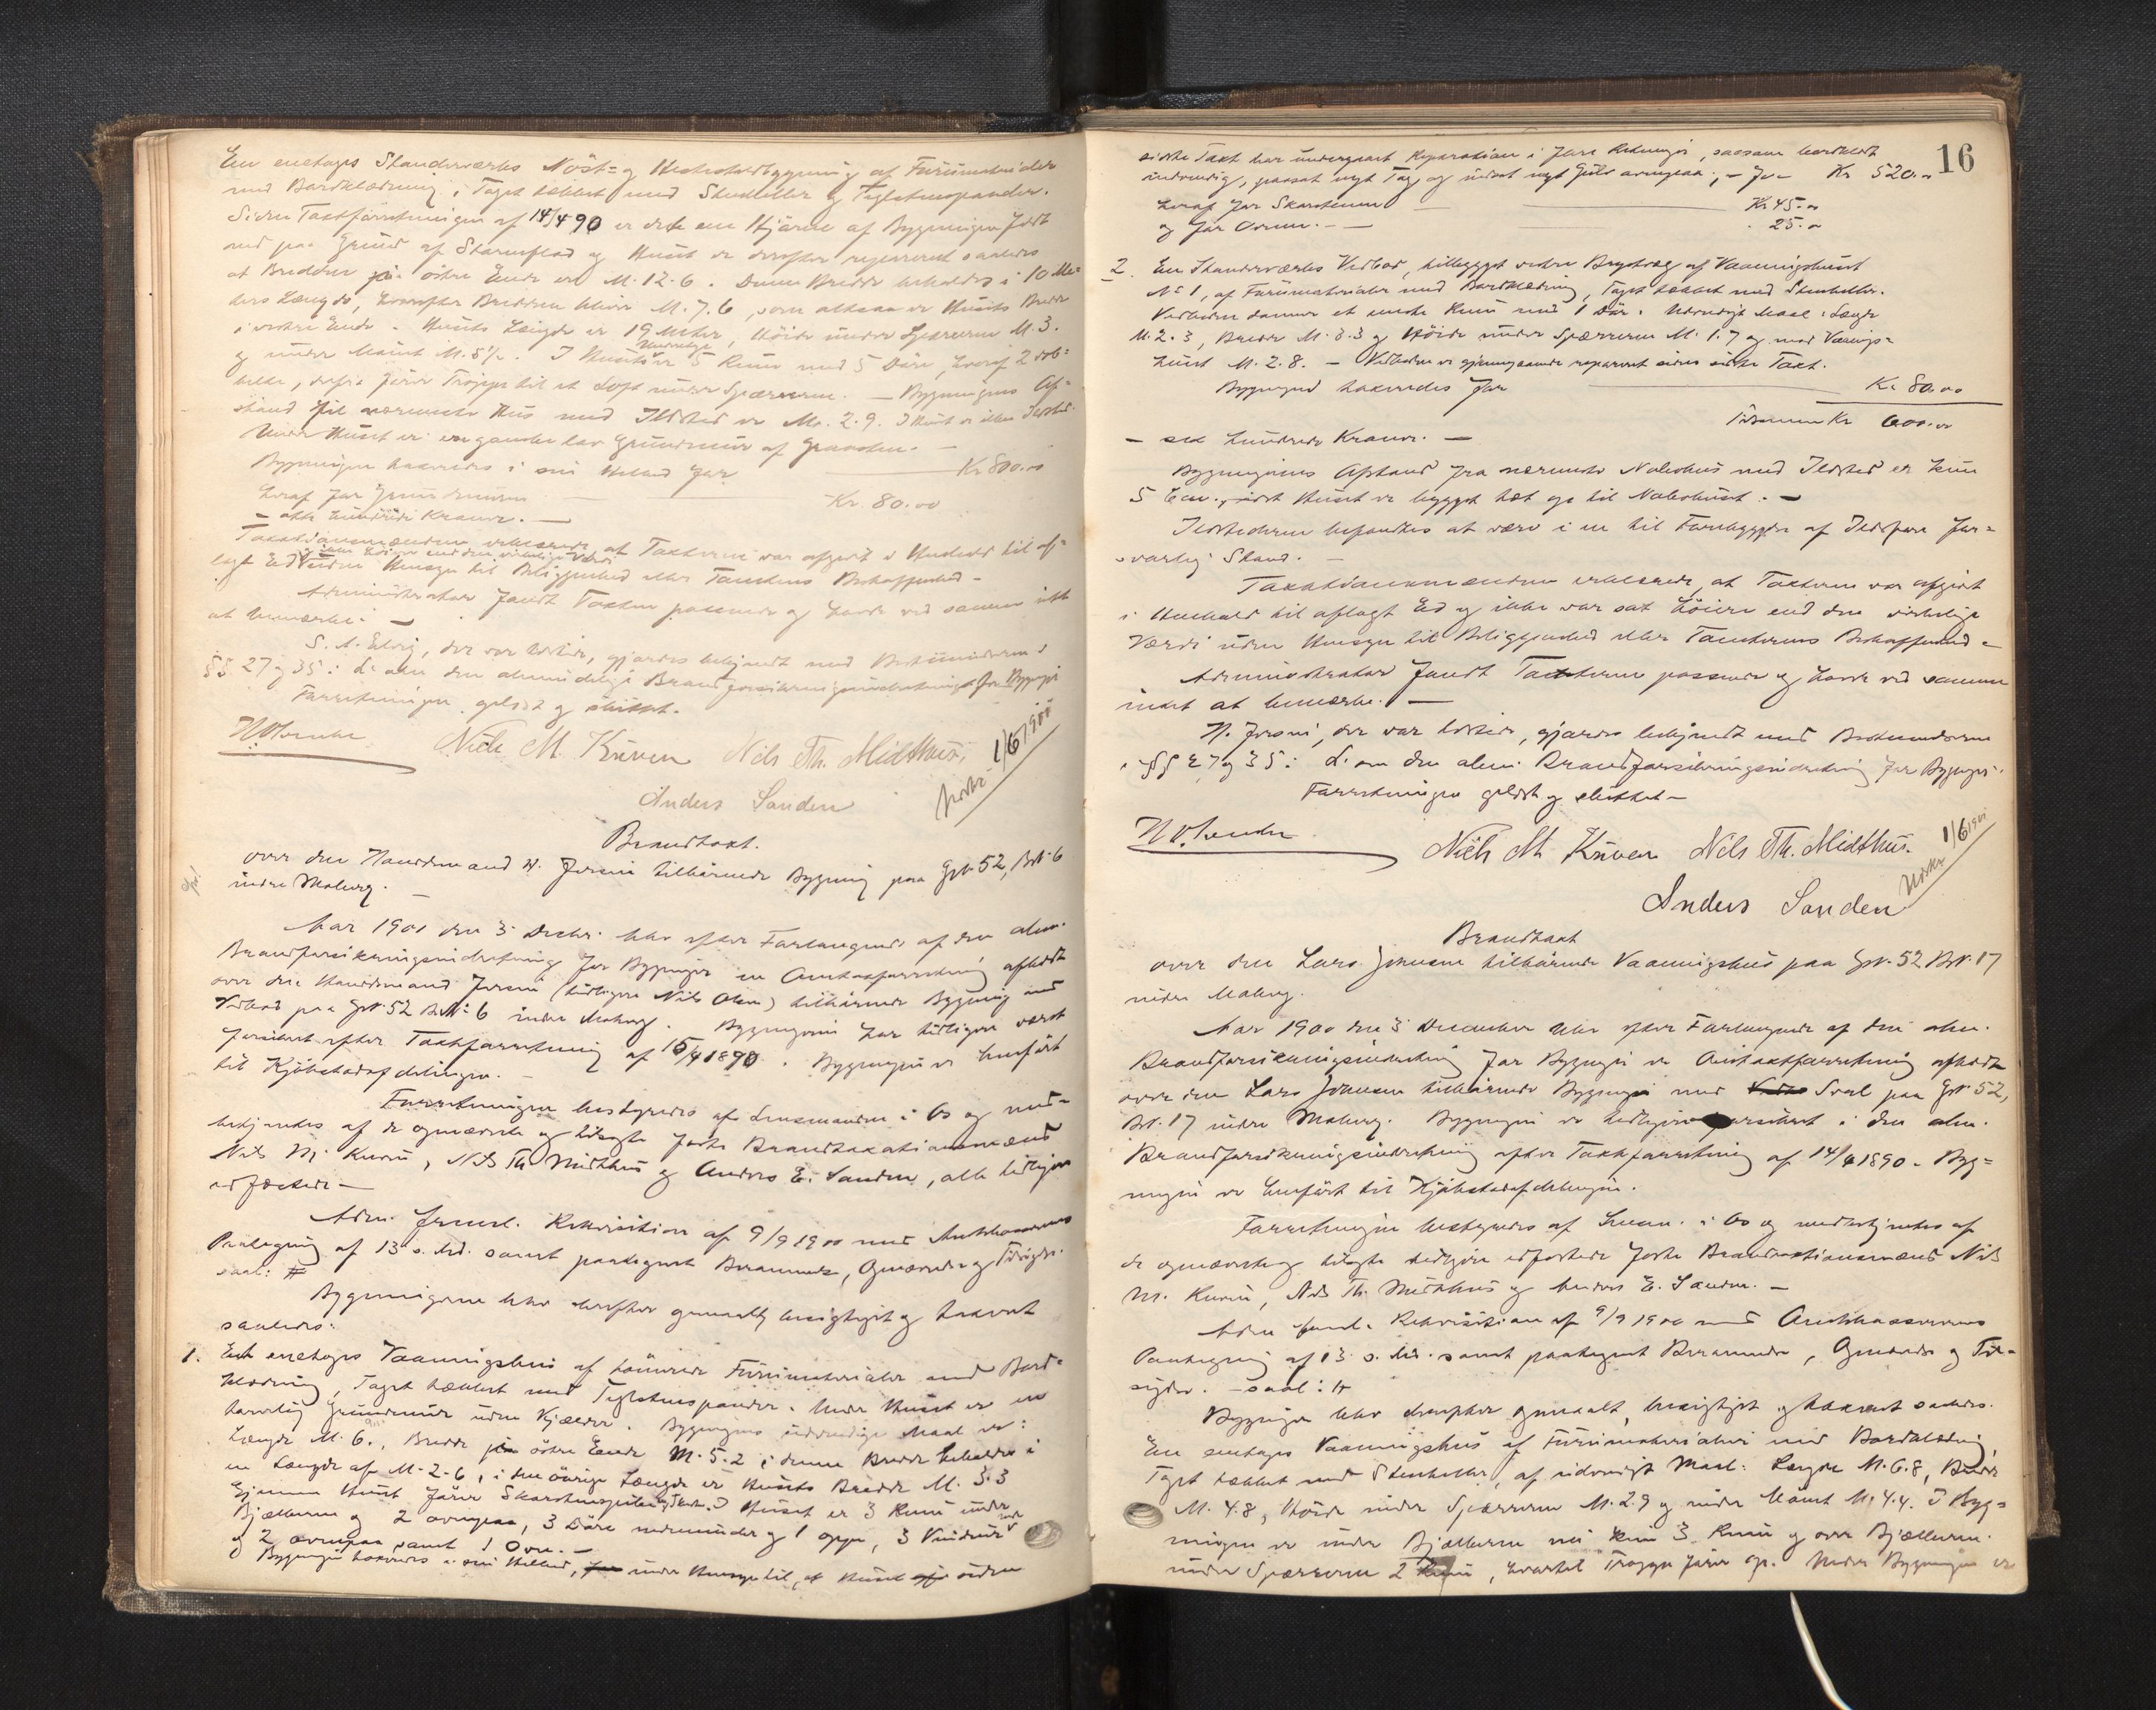 En enetages Standerværks Nöst- og Hesthaldbygning af Furumaterialer
med Bordklædning, Taget tækket med Stenheller og Teglstenspander.
Siden Taxtforretningen af 14/4 90 er det ene Hjörne af Bygningen
ned paa Grund af og Huset er derefter repareret saaledes
at Bredden paa östre Ende er M. 12.6. Denne Bredde beholdes i 10 Me-
ters Længde, hvorefter Bredden bliver M. 7.6, som altsaa er Husets Bredde
i vestre Ende. Husets Længde er 19 Meter, Höide under Spærrerne M. 3.
og under Mönet M. 5½. I Husets Underetage er 5 Rum med 5 Döre, hvoraf 2 dob-
belte, derfra förer Trappe til et Loft under Spærrerne. — Bygningens Af-
stand til nærmeste Hus med Ildsted er M. 2.9. I Huset er ikke Ildsted.
Under Huset er en ganske lav Grundmur af Graasten. —
Bygningen taxeredes i sin Helhed for — Kr 800.00
hvoraf for Grundmuren — Kr. 80.00
— otte hundrede Kroner. —
Taxationsmændene erklærede at Taxterne var afgivet i Henhold til af-
lagt Ed og ikke höiere end den virkelige Værdi uden Hensyn til Beliggenhed eller Tomtens Beskaffenhed —
Administrator fandt Taxten passende og havde ved samme intet
at bemærke. —
S. A. Elvig, der var tilstede, gjordes bekjendt med Bestemmelserne i
§§ 27 og 35 i L. om den almindelige Brandforsikringsindretning for Bygninger
Forretningen oplæst og sluttet.
Niels M. Kuven Nils Th. Midthus,
Anders Sanden
1/6 1900
Brandtaxt.
over den Handelsmand N. tilhörende Bygning paa Gr. 52, Br. 6
indre Moberg. —
Aar 1900 den 3 Decbr. blev efter Forlangende af den alm.
Brandforsikringsindretning for Bygninger en Omtaxtforretning afholdt
over den Handelsmand (tidligere Nils Olsen) tilhörende Bygning med
Vedbod paa Gr. 52 Br. 6 indre Moberg. Bygningerne har tidligere været
forsikret efter Taxtforretning af 15/4 1890. Bygningen er henfört
til Kjöbstadafdelingen. —
Forretningen bestyredes af Lensmanden i Os og med-
betjentes af de opnævnte og tilsagte faste Brandtaxationsmænd
Nils M. Kuven, Nils Th. Midthus og Anders E. Sanden, alle tidligere
edfæstede —
Adm. freml. Rekvisition af 9/9 1900 med Amtskasserernes
Paategning af 13 s. Md. samt paategnet Berammelse, Opnævnelse og Tilsigelse.
saal: #
Bygningerne blev derefter gjennemgaaet besigtiget og taxeret
saaledes:
1. En enetages Vaaningshus af tömrede Furumaterialer med Bord-
klædning, Taget tækket med Teglstenspander. Under Huset er en
Grundmur uden Kjælder. Bygningens udvendige Maal er:
Længde M. 6., Bredde paa östre Ende M. 5.2; denne Bredde beholdes i
en Længde af M. 2.6, i den övrige Længde er Husets Bredde M. 3.3
Gjennem Huset förer Skorstenspibe. I Huset er 3 Rum under
Bjælkerne og 2 ovenpaa, 3 Döre nedenunder og 1 oppe, 3 Vinduer
og 2 ovenpaa samt 1 Ovn. —
Bygningen taxeredes i sin Helhed, uden Hensyn til, at Huset siden
16
sidste Taxt har undergaaet Reparation i flere Retninger, saasom bordklædt
indvendig, paasat nyt Tag og indsat nyt Gulv ovenpaa, — for — Kr 520.00
hvoraf for Skorstenen — Kr 45.00
og for Ovnen. — 25.00
2. En Standerværks Vedbod, tilbygget vestre Brystvæg af Vaaningshuset
No 1, af Furumaterialer med Bordklædning, Taget tækket med Stenheller.
Vedboden danner et eneste Rum med 1 Dör. Udvendigt Maal: Længde
M. 2.3, Bredde M. 3.3 og Höide under Spærrerne M. 1.7 og mod Vaanings-
huset M. 2.8. — Vedboden er gjennemgaaende repareret siden sidste Taxt.
Bygningen taxeredes for — Kr 80.00
Tilsammen Kr 600.00
— sex hundrede Kroner. —
Bygningernes Afstand fra nærmeste Nabohus med Ildsted er kun
5 Cm., idet Huset er bygget tæt op til Nabohuset. —
Ildstederne befandtes at være i en til Forebyggelse af Ildsfare for-
svarlig Stand. —
Taxationsmændene erklærede, at Taxterne var afgivet
i Henhold til aflagt Ed og ikke var sat höiere end den virkelige
Værdi uden Hensyn til Beliggenhed eller Tomternes Beskaffenhed —
Administrator fandt Taxterne passende og havde ved samme
intet at bemærke. —
N. der var tilstede, gjordes bekjendt med Bestemmelserne
i §§ 27 og 35 i L. om den alm. Brandforsikringsindretning for Bygninger.
Forretningen oplæst og sluttet —
Niels M. Kuven Nils Th. Midthus.
Anders Sanden
1/6 1901
Brandtaxt
over den Lars Johnsen tilhörende Vaaningshus paa Gr. 52 Br. 17
indre Moberg.
Aar 1900 den 3 December blev efter Forlangende af den alm.
Brandforsikringsindretning for Bygninger en Omtaxtforretning afholdt
over den Lars Johnsen tilhörende Bygning med Sval paa Gr. 52,
Br. 17 indre Moberg. Bygningen er tidligere forsikret i den alm.
Brandforsikringsindretning efter Taxtforretning af 14/4 1890. Byg-
ningen er henfört til Kjöbstadafdelingen.
Forretningen bestyredes af Lensm. i Os og medbetjentes af
de opnævnte og tilsagte tidligere edfæstede faste Brandtaxationsmænd Nils
M. Kuven, Nils Th. Midthus og Anders E. Sanden. —
Adm freml. Rekvisition af 9/9 1900 med Amtskasserernes
Paategning af 13 s. Md. samt paategnet Berammelse, Opnævnelse og Til-
sigelse. — saal: #
Bygningen blev derefter opmaalt, besigtiget og taxeret saaledes.
En enetages Vaaningshus af Furumaterialer med Bordklædning,
Taget tækket med Stenheller, af udvendigt Maal: Længde M. 6.8, Bredde
M. 4.8, Höide under Spærrerne M. 2.9 og under Mönet M. 4.4. I Byg-
ningen er under Bjælkerne 3 Rum og over Bjælkerne
under Spærrerne 2 Rum, hvortil Trappe förer op. Under Bygningen er